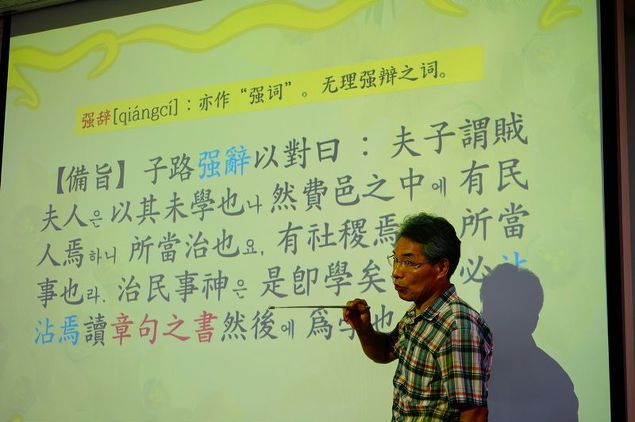 强辞[qiángcí]：亦作“强词”。无理强辩之词。
【備旨】子路强辭以對曰：夫子謂賊
夫人은 以其未學也나 然費邑之中에 有民
人焉하니 所當治也요, 有社稷焉 所當
事也라. 治民事神은 是卽學矣 必沾
沾焉讀章句之書然後에 爲學也